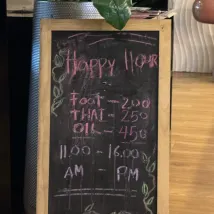 Happy Hour
FOOT - 200
THAI - 250
OIL - 450
11.00 - 16.00
AM - PM